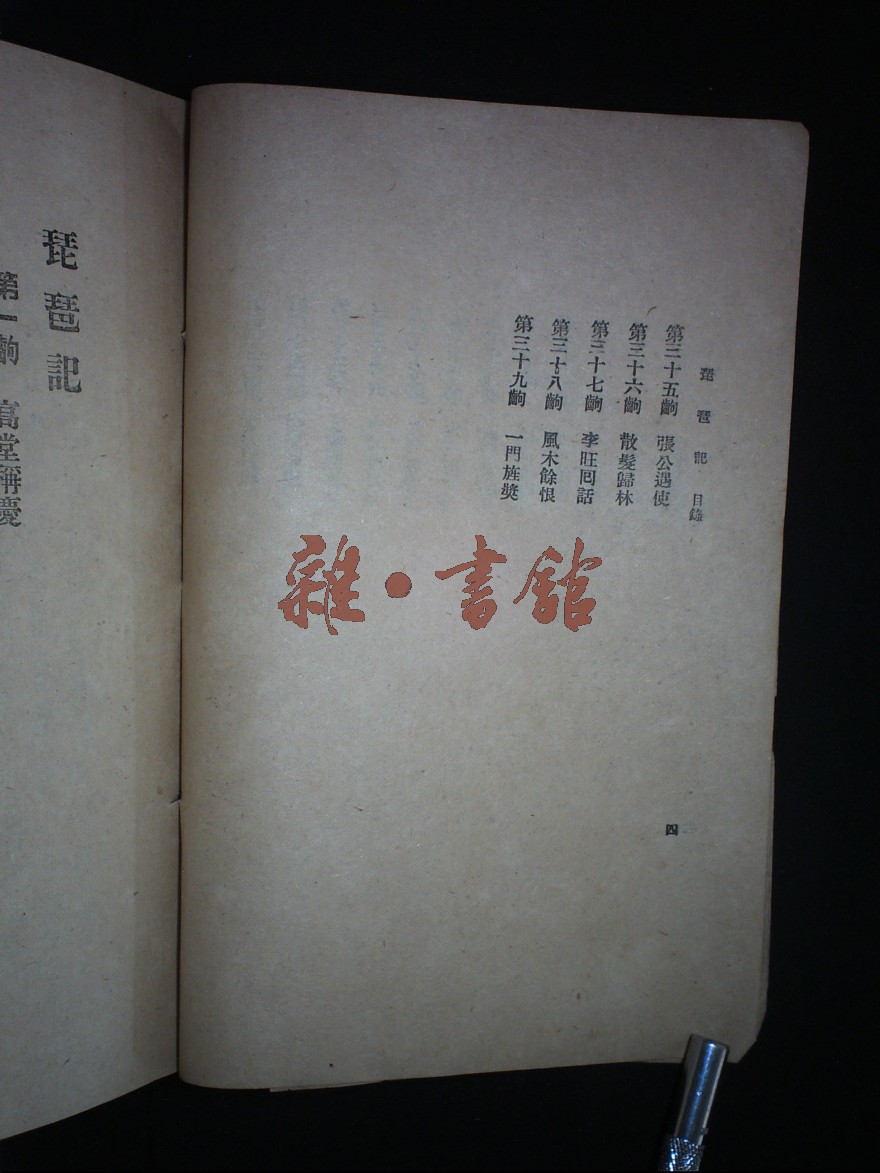 琵琶記 目錄
第三十五齣 張公遇使
第三十六齣 散髮歸林
第三十七齣 李旺囘話
第三十八齣 風木餘恨
第三十九齣 一門旌奬
四
琵琶記
第一齣 高堂稱慶
雜·書館